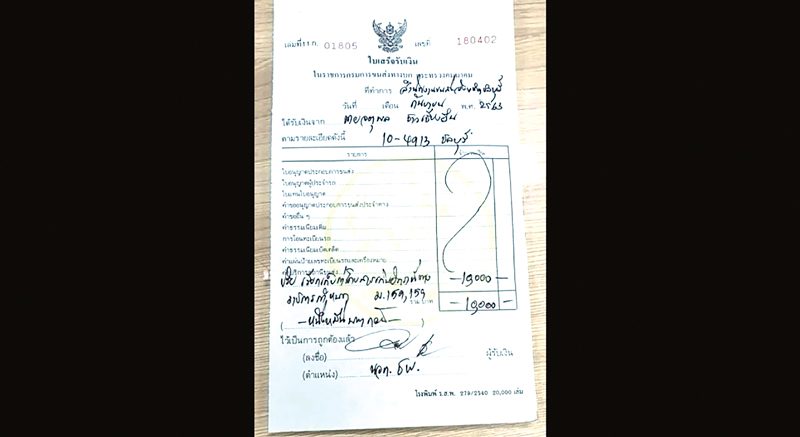 เล่มที่ รก. 01805 เลขที่ 180402
ใบเสร็จรับเงิน
ในราชการกรมการขนส่งทางบก กระทรวงคมนาคม
ที่ทำการ สำนักงานขนส่งจังหวัดชลบุรี
วันที่ เดือน กันยายน พ.ศ. 2563
ได้รับเงินจาก นายจตุพล
ตามรายละเอียดดังนี้ 10-4913 ชลบุรี
รายการ จำนวนเงิน
ใบอนุญาตประกอบการขนส่ง
ใบอนุญาตผู้ประจำรถ
ใบแทนใบอนุญาต
คำขออนุญาตประกอบการขนส่งประจำทาง
คำขออื่น ๆ
ค่าธรรมเนียมเพิ่ม
การโอนทะเบียนรถ
ค่าธรรมเนียมเบ็ดเตล็ด
ค่าแผ่นป้ายเลขทะเบียนรถและเครื่องหมาย
-10,000-
ปรับ เรียกเก็บค่าโดยสารเกินอัตราที่ทาง
ราชการกำหนด ม.159,159 รวม บาท -10,000-
(-หนึ่งหมื่นบาทถ้วน-)
ไว้เป็นการถูกต้องแล้ว
(ลงชื่อ) ผู้รับเงิน
(ตำแหน่ง) นวก. ชพ.
โรงพิมพ์ ร.ส.พ. 279/2540 20,000 เล่ม